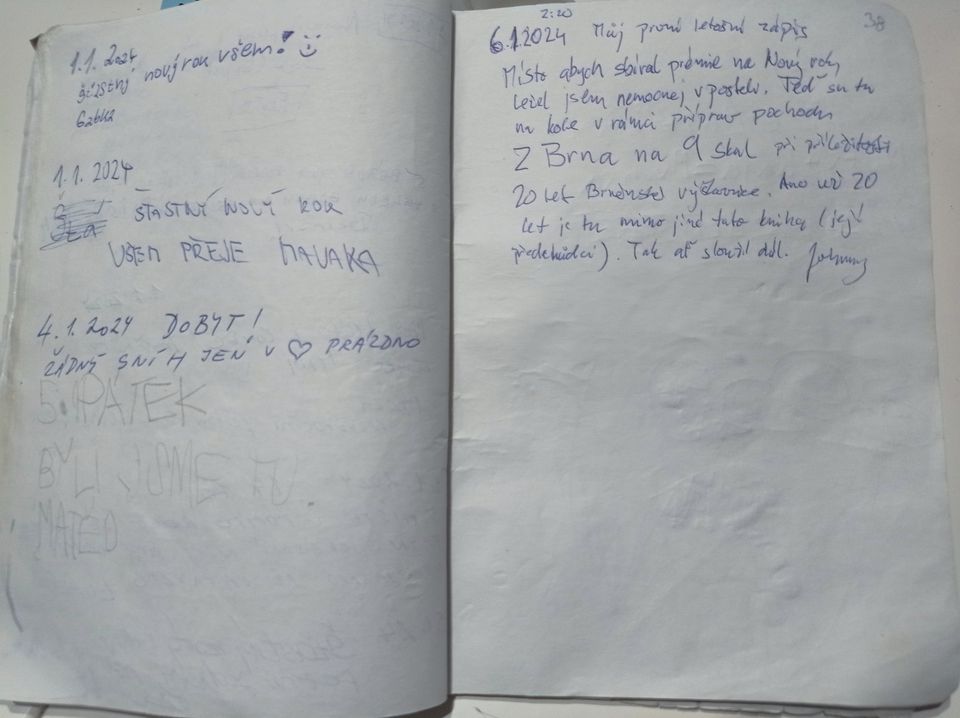 1.1. 2024
šťastný nový rok všem! :)
Gabka
1.1. 2024
ŠŤASTNÝ NOVÝ ROK
VŠEM PŘEJE HAVAKA
4.1.2024 DOBYT!
ŽÁDNÝ SNÍH JEN V ♡ PRÁZDNO
5. PÁTEK
BYLI JSME TU
MATĚO
38
2:20
6.1.2024 Můj první letošní zápis
Místo abych sbíral prémie na Nový rok,
ležel jsem nemocnej v posteli. Teď su tu
na kole v rámci příprav pochodu
Z Brna na 9 skal při příležitosti
20 let Brněnské výčavnice. Ano už 20
let je tu mimo jiné tato kniha (její
předchůdci). Tak ať slouží dál. Johnny